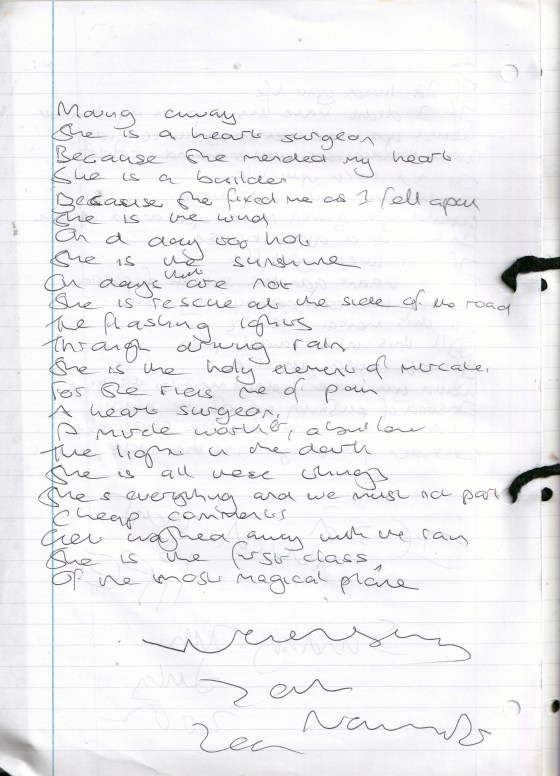 Moving away
She is a heart surgeon
Because she mended my heart
She is a builder
Because she fixed me as I fell apart
She is the wind
On a day too hot
She is the sunshine
On days that are not
She is rescue at the side of the road
the flashing lights
through driving rain
She is the holy element of
For she rids me of pain
A heart surgeon,
A miracle worker,
The light in the dark
She is all these things
She's everything and we must not part
Cheap comments
Get washed away with the rain
She is the first class
Of the most magical plane
Wednesday